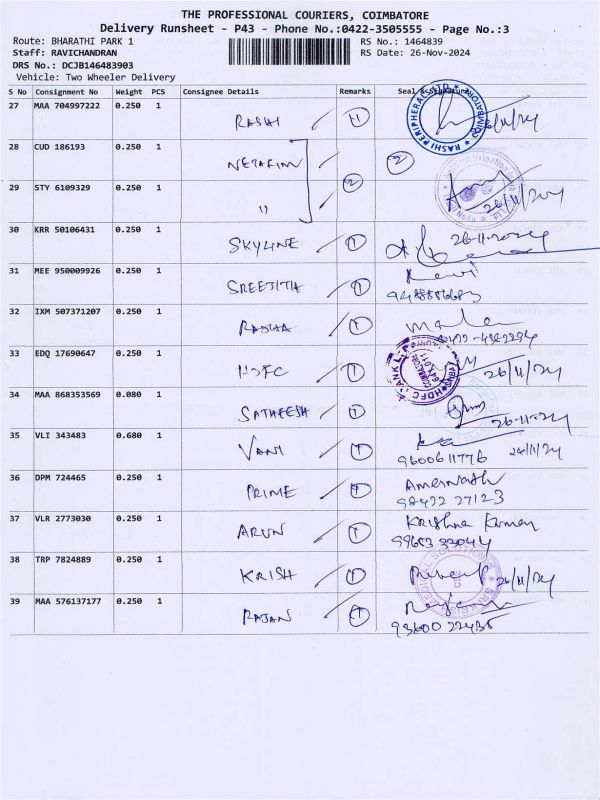 THE PROFESSIONAL COURIERS, COIMBATORE
Delivery Runsheet - P43 - Phone No.:0422-3505555 - Page No.:3
Route: BHARATHI PARK 1
RS No.: 1464839
Staff: RAVICHANDRAN
RS Date: 26-Nov-2024
DRS No.: DCJB146483903
Vehicle: Two Wheeler Delivery
S No Consignment No Weight PCS Consignee Details Remarks Seal & Signature
27 MAA 704997222 0.250 1 RASHI 1
RASHI PERIPHERALS LTD. COIMBATORE
28 CUD 186193 0.250 1 NETAFIM 2
29 STY 6109329 0.250 1 " 2 26/11/2024
30 KRR 50106431 0.250 1 SKYLINE 1 26-11-2024
31 MEE 950009926 0.250 1 SREEJITH 1 Ravi
32 IXM 507371207 0.250 1 1 0422-4362294
33 EDQ 17690647 0.250 1 HDFC 1 26/11/24
HDFC BANK LTD
34 MAA 868353569 0.080 1 SATHEESH 1 26-11-2024
35 VLI 343483 0.680 1 VANI 1 26/11/24
9600611776
36 DPM 724465 0.250 1 PRIME 1 Amernath
98422 27123
37 VLR 2773030 0.250 1 ARUN 1 Krishna Kumar
99653 33044
38 TRP 7824889 0.250 1 KRISH 1 26/11/24
39 MAA 576137177 0.250 1 RAJAN 1
93600 22435